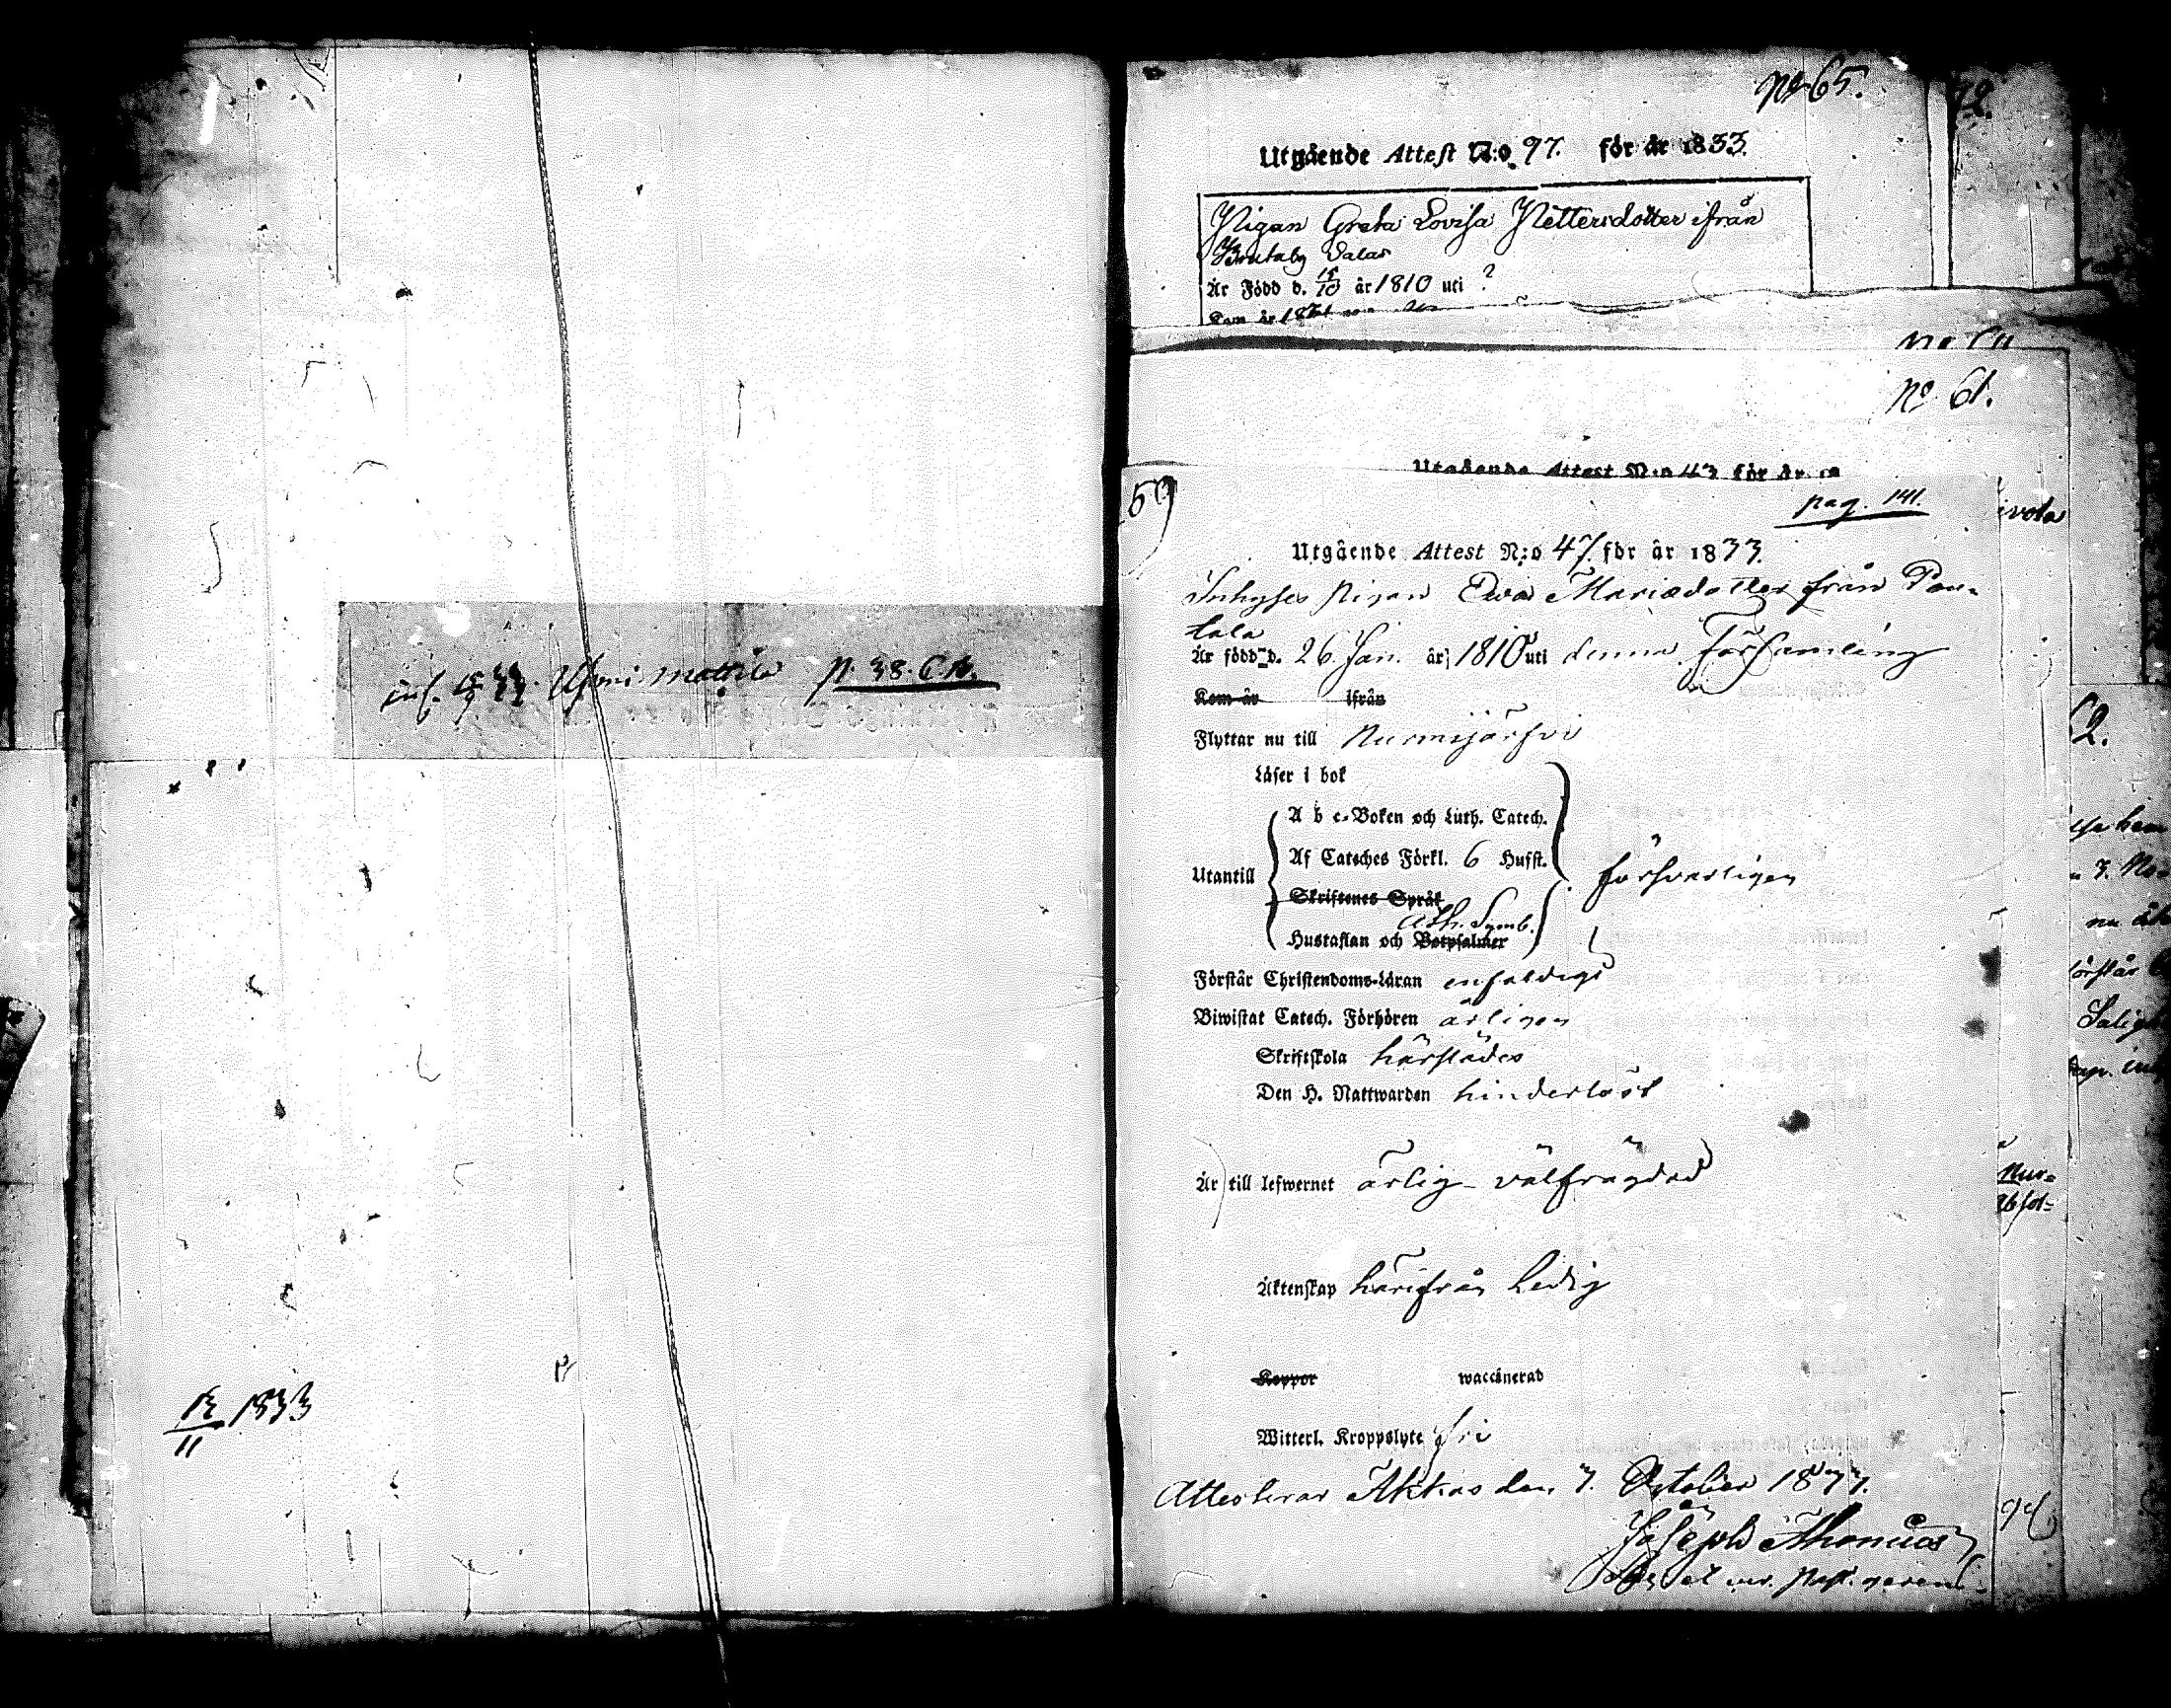 inf. 15/9 33. Uhoni. Mattila p. 38. C.B.
13/11 1833
No 65.
72.
Utgående Attest N:o 97. för år 1833.
Pigan Greta Lovisa Pettersdotter ifrån
Dalas
Är Född d. 15/10 år 1810 uti ?
Kom år
No 61.
Utgående Attest N:o 43 för år
59
pag. 141.
ivola
Utgående Attest N:o 47 för år 1833.
Inhyses Pigan Ewa Mariædotter från Pou-
tala
Är född d. 26 Jan. år 1810 uti denna Församling
Kom år ifrån
Flyttar nu till Nurmijärfvi
62.
Läser i bok
A b c-Boken och Luth. Catech.
Af Cateches Förkl. 6 Hufst.
Utantill
försvarligen
Skriftenes Språk
Ath. Symb.
Hustaflan och Botpsalmer
Förstår Christendoms-Läran enfaldigt
Biwistat Catech. Förhören årligen
Skriftskola härstädes
Den H. Nattwarden hinderlöst
Är till lefwernet ärlig välfrägdad
Nur-
Äktenskap härifrån Ledig
Koppor waccinerad
Witterl. Kroppslyte fri
Attesterar Akkas den 7. October 1833.
Joseph Thomæus